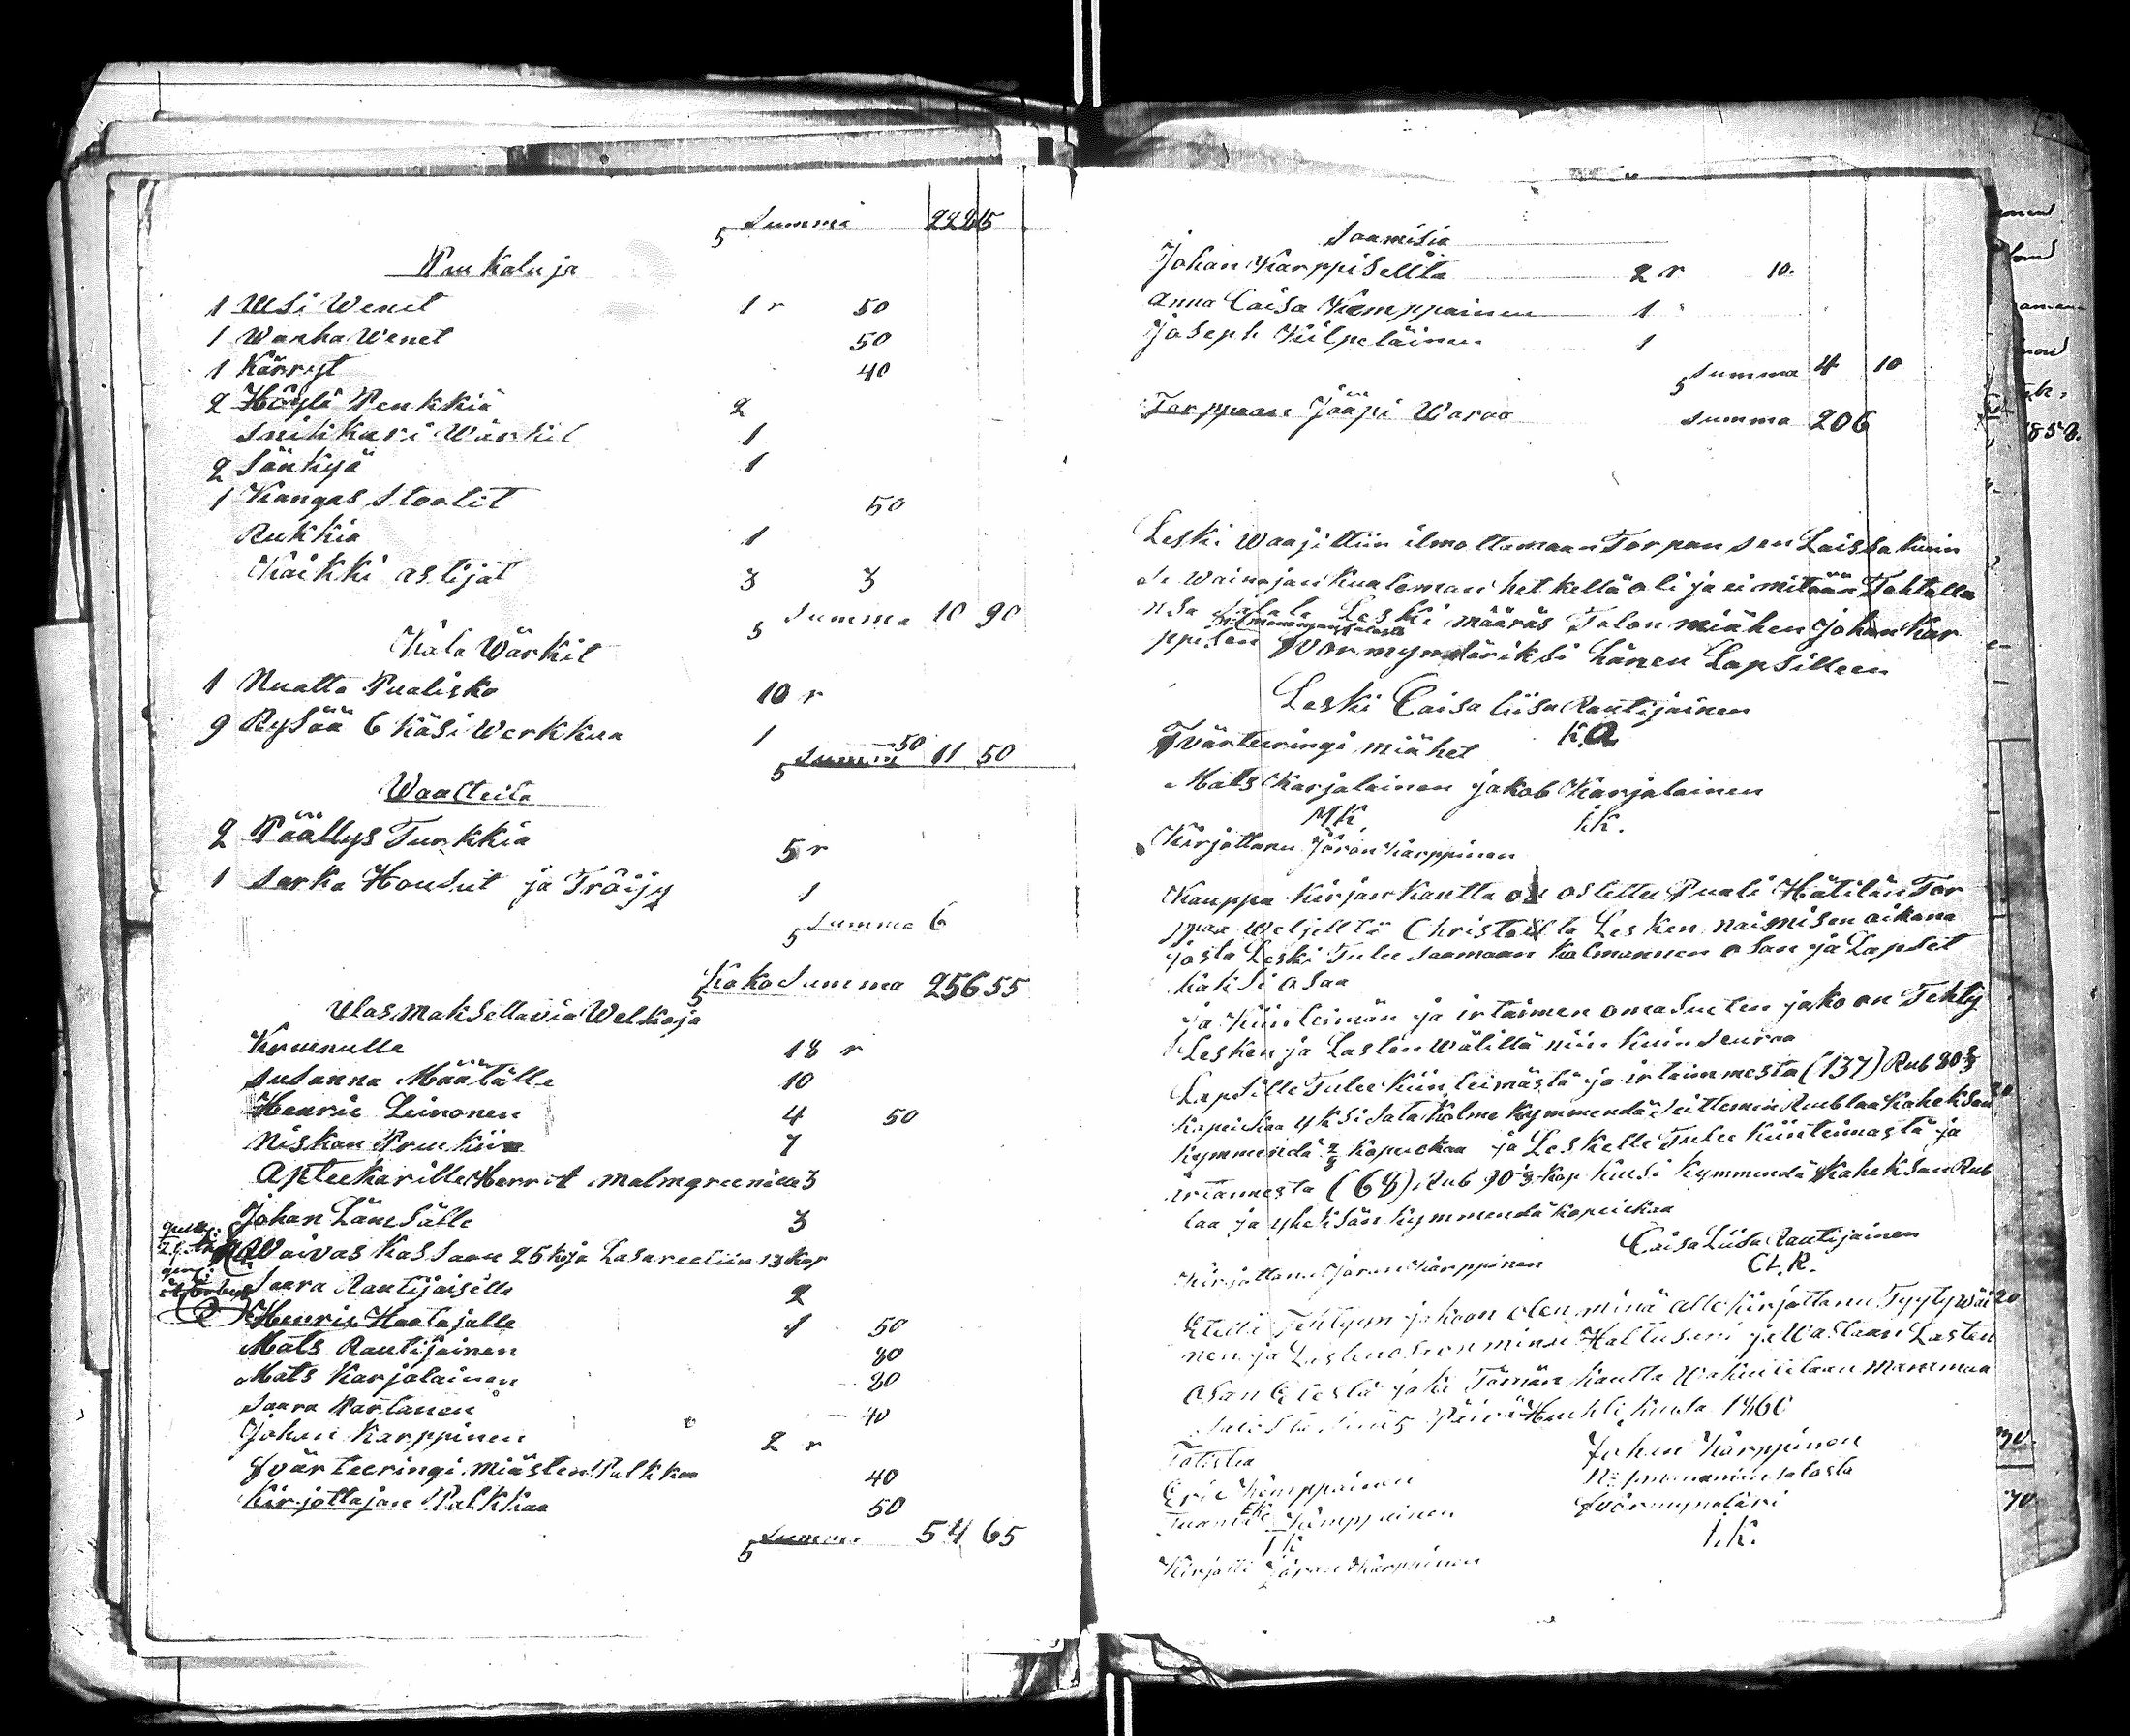 Summa 228 15
Puu Kaluja
1 Uusi Wenet 1 r 50
1 Wanha Wenet 50
1 Kärryt 40
2 Höylä Penkkiä 2
Snikkari Wärkit 1
2 Sänkyä 1
1 Kangas stoolit 50
Rukkia 1
Kaikki astijat 3 3
Summa 10 90
Kala Wärkit
1 Nuatta Pualisko 10 r
9 Rysää 6 käsi Werkkua 1 50
Summa 11 50
Waatteita
2 Päällys Turkkia 5 r
1 Sarka Housut ja Tröijy 1
Summa 6
Koko Summa 256 55
Ulos Maksettavia Welkoja
Kruunulle 18 r
Susanna Määtälle 10
Henric Leinonen 4 50
Niskan Pruukiin 7
Apteekarille Herra Malmgreenille 3
Johan Länsälle 3
Waivas Kassaan 25 k ja Lasareeliin 13 kop
Saara Rautijaiselle 2
Henric Haatajalle 1 50
Mats Rautijainen 80
Mats Karjalainen 80
Saara Partanen 40
Johan Karppinen 2 r
Wärteeringi miästen Palkkaa 40
Kirjottajan Palkkaa 50
Summa 54 65
Saamisia
Johan Karppiselta 2 r 10
Anna Caisa Kemppainen 1
Joseph Kilpeläinen 1
Summa 4 10
Torppaan Jääpi Waraa summa 206
Leski Waajittiin ilmottamaan Torpan sen Laissa kuin
se Wainajan Kualeman hetkellä oli ja ei mitään Tahtalla
nsa salata Leski määräs Talon miähen Johan Kar
ppisen Wormyndäriksi hänen Lapsilleen
Leski Caisa Liisa Rautijainen
Wärteeringi miähet
Mats Karjalainen Jakob Karjalainen
M.K. I.K.
Kirjottanu Jöran Karppinen
Kauppa Kirjan Kautta on ostettu Puali Hätilän Tor
ppaa Weljeltä Lesken naimisen aikana
josta Leski Tulee saamaan Kolmannen osan ja Lapset
kaksi osaa
ja Kiinteimän ja irtaimen omasuuten jako on Tehty
Lesken ja Lasten Wälillä niin kuin seuraa
Lapsille Tulee kiinteimästä ja irtaimmesta (137) Rub 80 2/3
kapeikaa yksi sata kolme kymmendä seittemin Ruublaa kaheksan
kymmendä 2/3 kapeekaa ja Leskelle Tulee Kiinteimastä ja
irtannesta (68) Rub 90 1/3 kop kuusi kymmendä kaheksan Rub
laa ja yheksän kymmendä kopeikaa
Caisa Liisa Rautijainen
C.L.R.
Kirjottanu Jöran Karppinen
Etellä Tehtyyn jakoon olen minä alle kirjottanu Tyytywäi
nen ja
osan Etestä Tämän kautta
5 Päivä Huhti kuuta 1860
Totistaa
Johan Karppinen
Eric Kemppainen
EK
Wörmyndäri
Kemppainen
I.K.
Kirjotti Jöran Karppinen